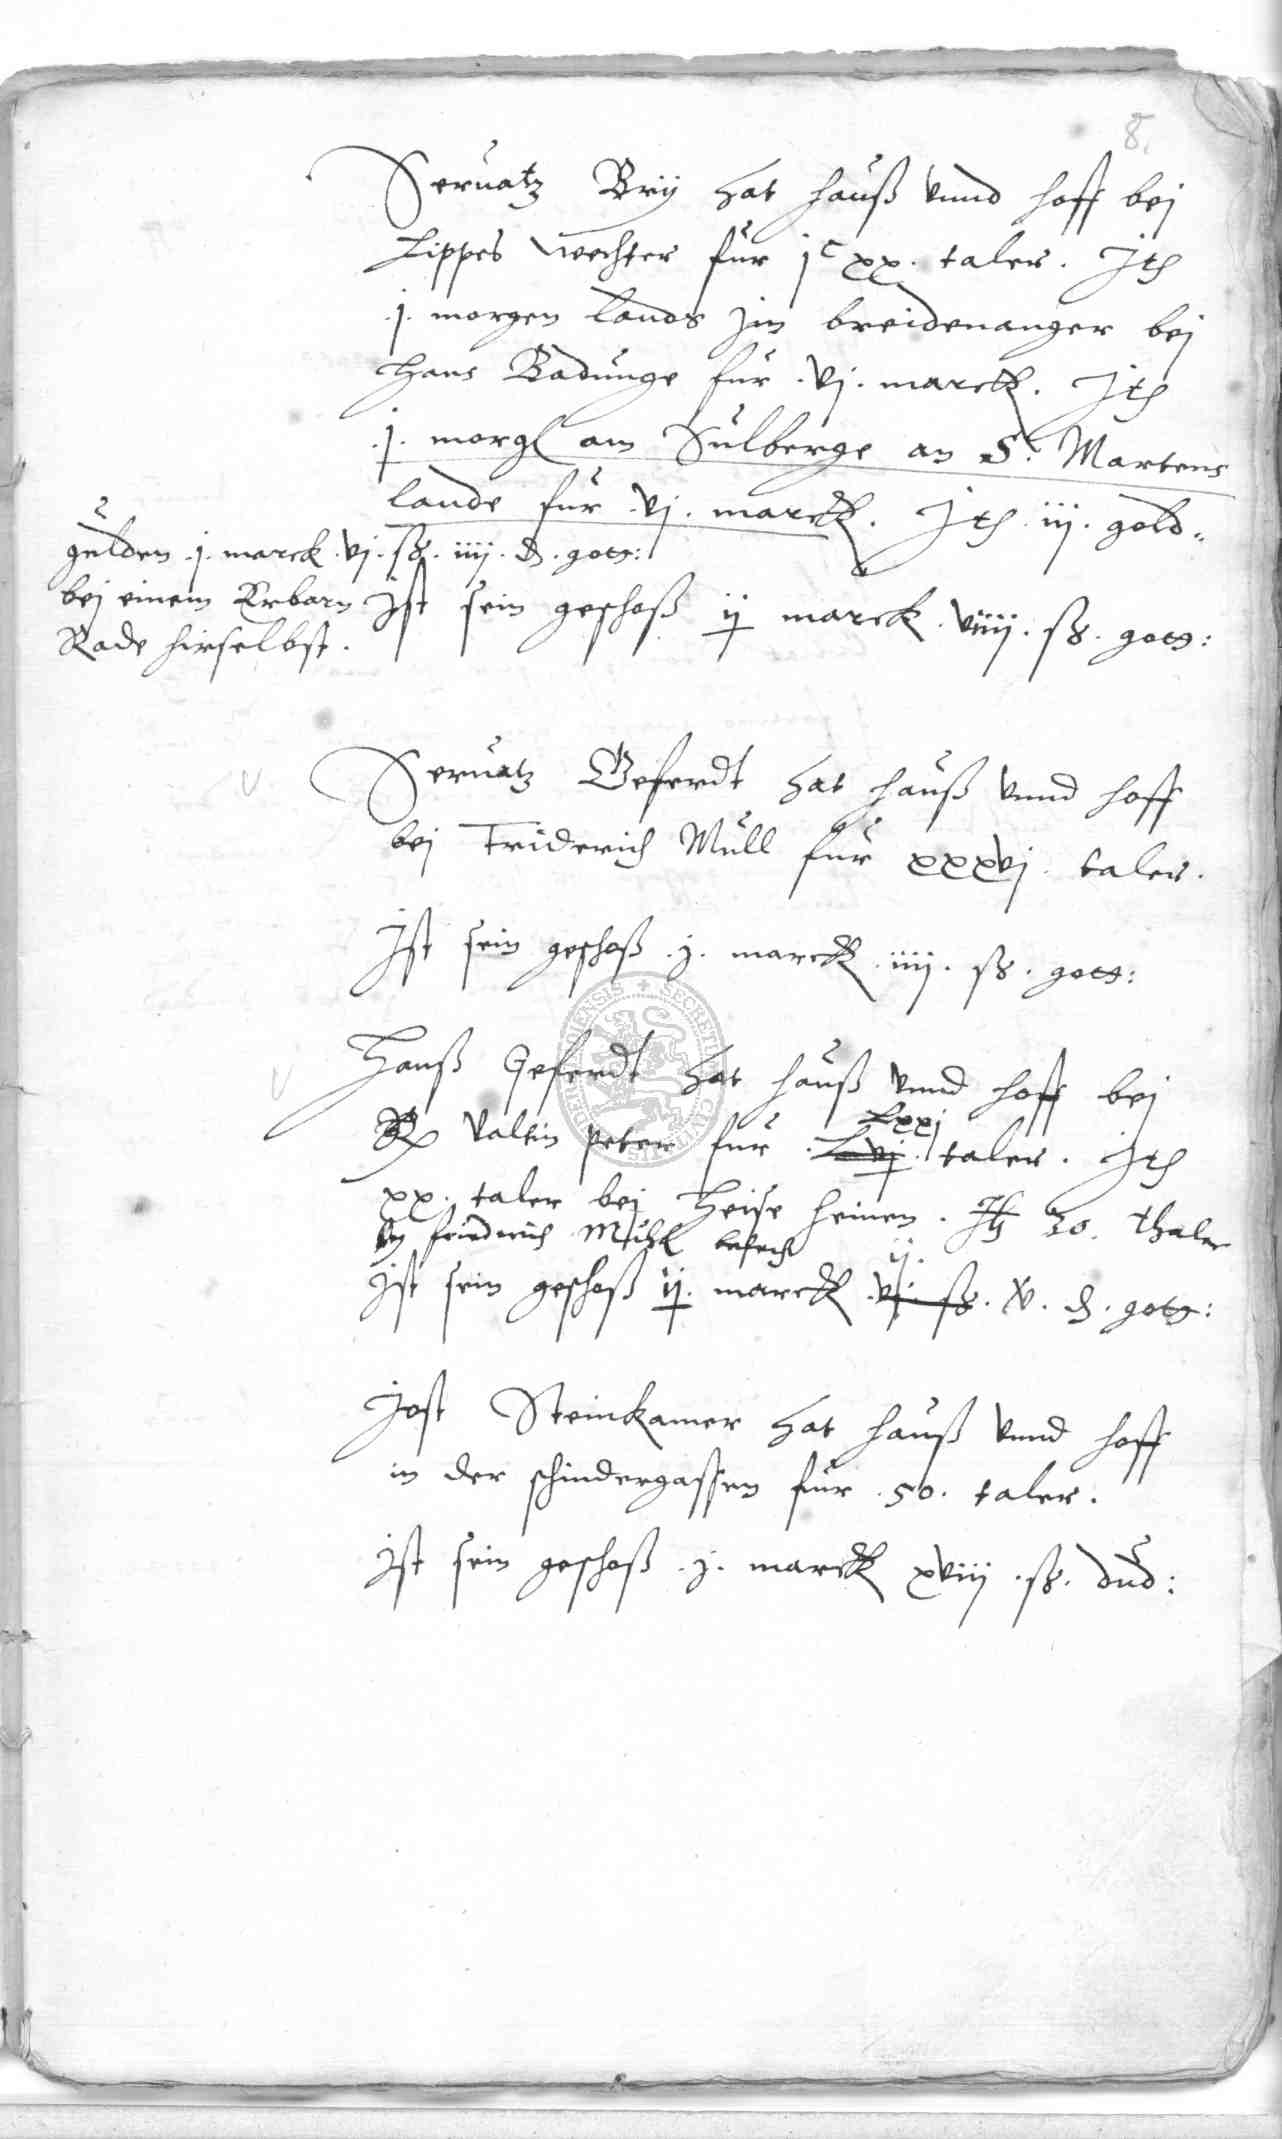 8.
Seruatz Brÿ hat hauß vnnd hoff bej
Lippes Wechter fur jc xx. taler. Jth
.j. morgen lands jm breidenanger bej
Hans Badunge fur .vj. marck. Jth
.j. morg am Sulberge an S. Martens
lande fur .vj. marck. Jth .iij. gold„
gulden .j. marck .vj. ß. iiij. d. gots:
bej einem Erbarn
Rade hirselbst.
Ist sein geschoß ij marck .viiij. ß. gots:
Seruatz Geferdt hat hauß vnnd hoff
bej Friderich Mull fur xxxvj. taler.
Ist sein geschoß .j. marck .iiij. ß. gots:
Hanß Geferdt hat hauß vnnd hoff bej
Valtin Peter fur Lxxj taler. Jth
xx. taler bej Heise Heinen. It 20. thaler
bej friderich Muhl
Ist sein geschoß ij. marck ij. vj. ß. v. d. gots:
Jost Steinkamer hat hauß vnnd hoff
in der schindergassen fur .50. taler.
Ist sein geschoß .j. marck xviij .ß. dud:
SECRETU CIVITATIS